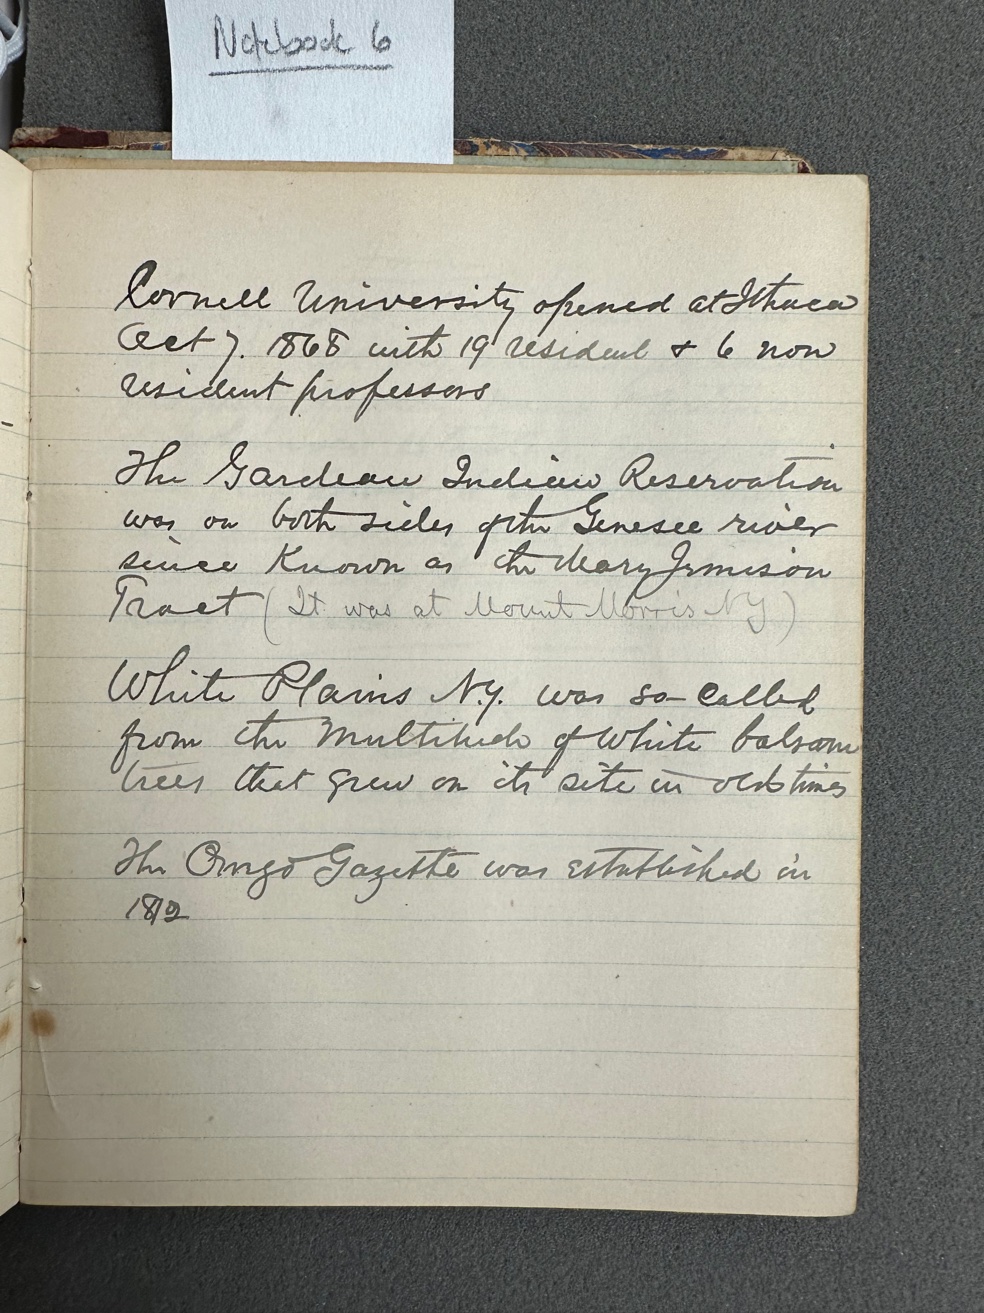 Notebook 6
Cornell University opened at Ithaca
Oct 7. 1868 with 19 resident & 6 non
resident professors
The Gardeau Indian Reservation
was on both sides of the Genesee river
since Known as the Mary Jemison
Tract (It was at Mount Morris NY)
White Plains N.Y. was so-called
from the Multitude of White balsam
trees that grew on its site in old times
The Gazette was established in